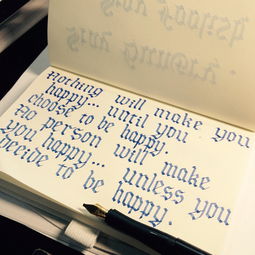 Nothing will make you
happy... until you
choose to be happy.
No person will make
you happy... unless you
decide to be happy.